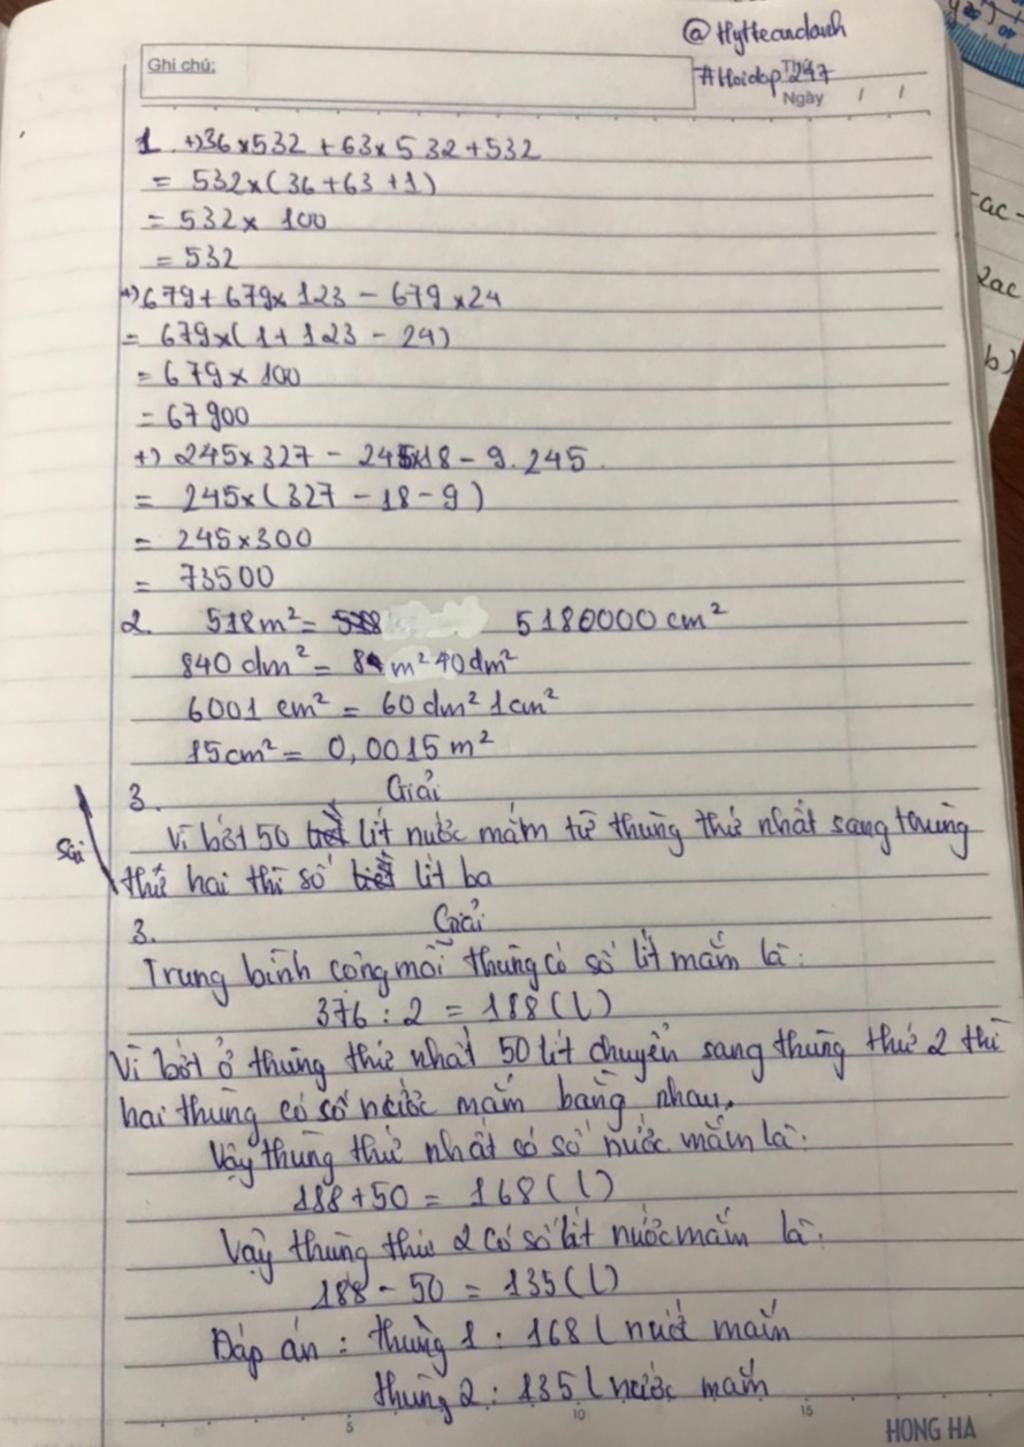 @Hytteandanh
Ghi chú:
#Hoidap247
Thứ
Ngày / /
1 +) 36 × 532 + 63 × 532 + 532
= 532 × (36 + 63 + 1)
= 532 × 100
= 532
+) 679 + 679 × 123 - 679 × 24
= 679 × (1 + 123 - 24)
= 679 × 100
= 67900
+) 245 × 327 - 245 × 18 - 9. 245.
= 245 × (327 - 18 - 9)
= 245 × 300
= 73500
2. 518m² = 5180000 cm²
840 dm² = 8 m² 40 dm²
6001 cm² = 60 dm² 1cm²
15cm² = 0,0015 m²
3. Giải
Vì bớt 50 lít nước mắm từ thùng thứ nhất sang thùng
Sai
thứ hai thì số lít ba
3. Giải
Trung bình cộng mỗi thùng có số lít mắm là:
376 : 2 = 188 (l)
Vì bớt ở thùng thứ nhất 50 lít chuyển sang thùng thứ 2 thì
hai thùng có số nước mắm bằng nhau.
Vậy thùng thứ nhất có số nước mắm là:
188 + 50 = 168 (l)
Vậy thùng thứ 2 có số lít nước mắm là:
188 - 50 = 135 (l)
Đáp án : thùng 1 : 168 l nước mắm
thùng 2 : 135 l nước mắm
5 10 15
HONG HA
-ac-
2ac
b)